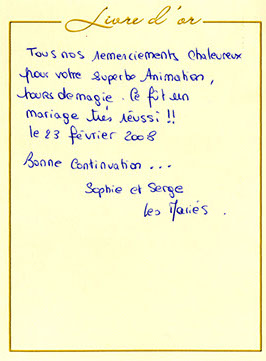 Livre d'or
Tous nos remerciements chaleureux
pour votre superbe Animation,
tours de magie. Ce fût un
mariage très réussi !!
le 23 février 2008
Bonne Continuation ...
Sophie et Serge
Les Mariés.